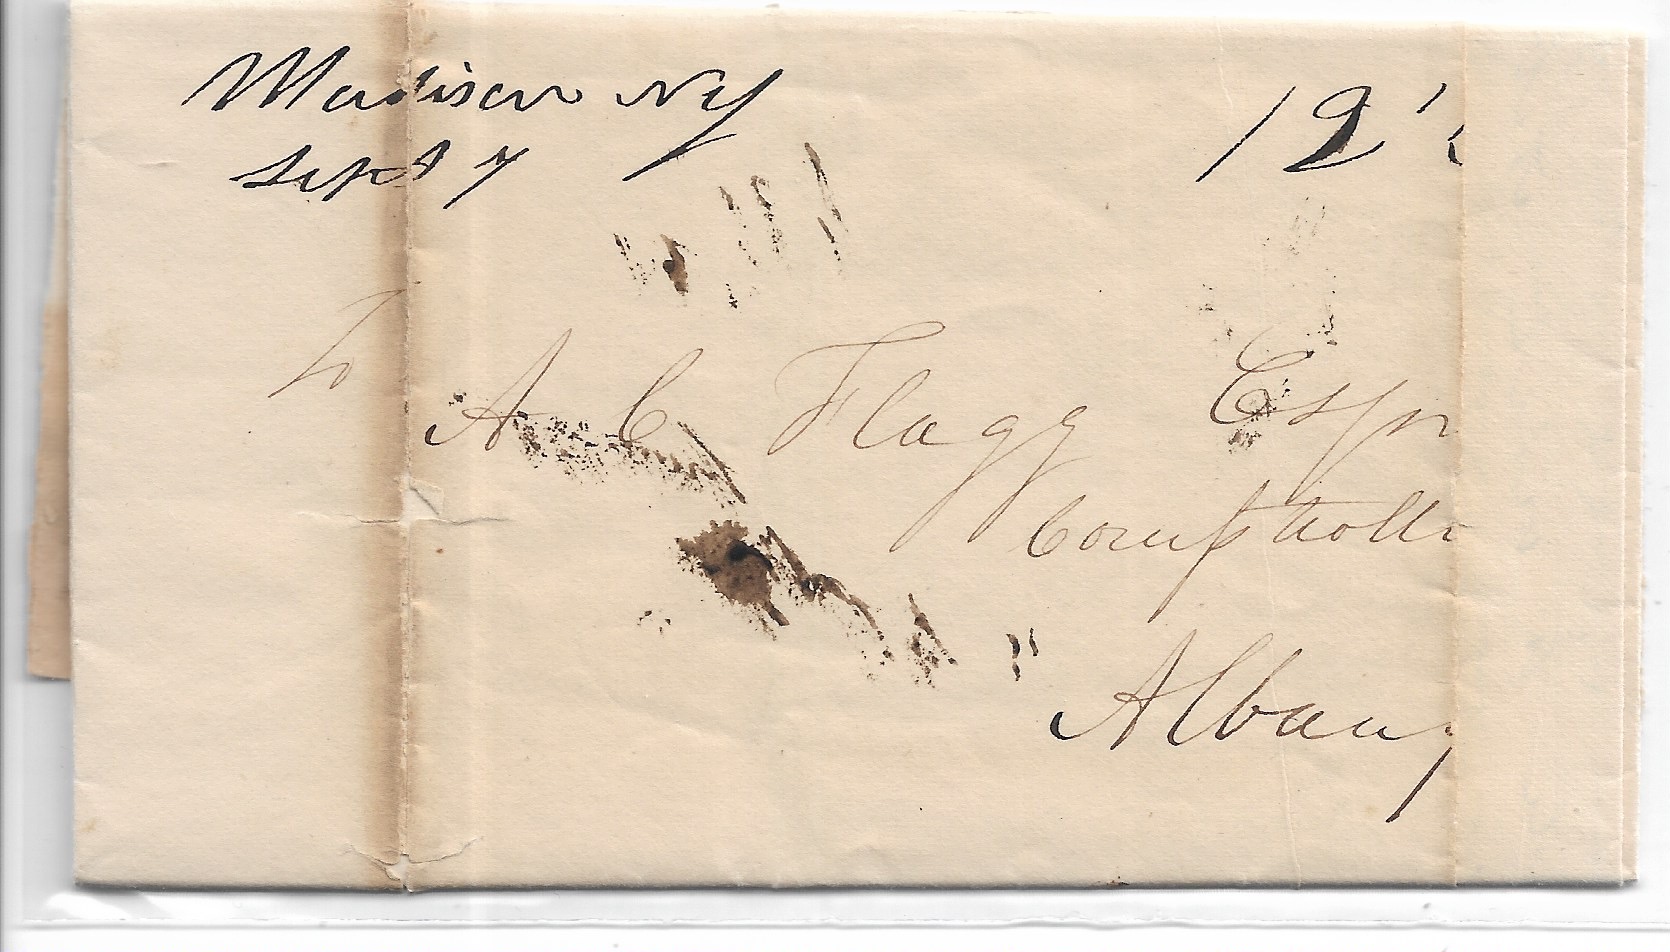 Madison NY
Sept 7
12
To
A C Flagg Esqr
Comptroller
Albany